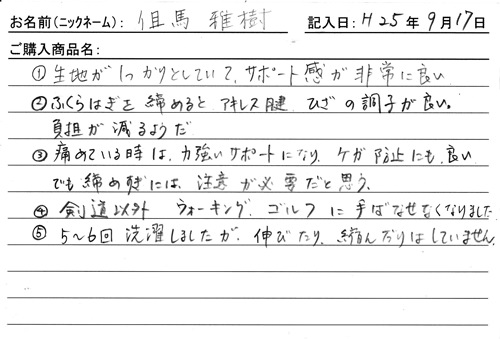 お名前(ニックネーム): 但馬 雅樹 記入日: H25年9月17日
ご購入商品名:
①生地がしっかりとしていて、サポート感が非常に良い
②ふくらはぎを締めるとアキレス腱、ひざの調子が良い。
負担が減るようだ
③痛めている時は、力強いサポートになり、ケガ防止にも良い
でも締めすぎには、注意が必要だと思う。
④剣道以外 ウォーキング、ゴルフに手ばなせなくなりました
⑤5~6回洗濯しましたが、伸びたり、縮んだりはしていません。